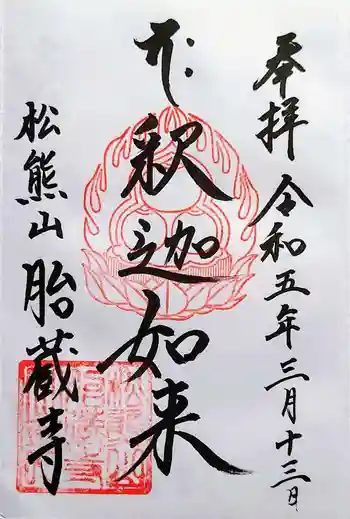 奉拝 令和五年三月十三日
釈迦如来
松熊山 胎蔵寺